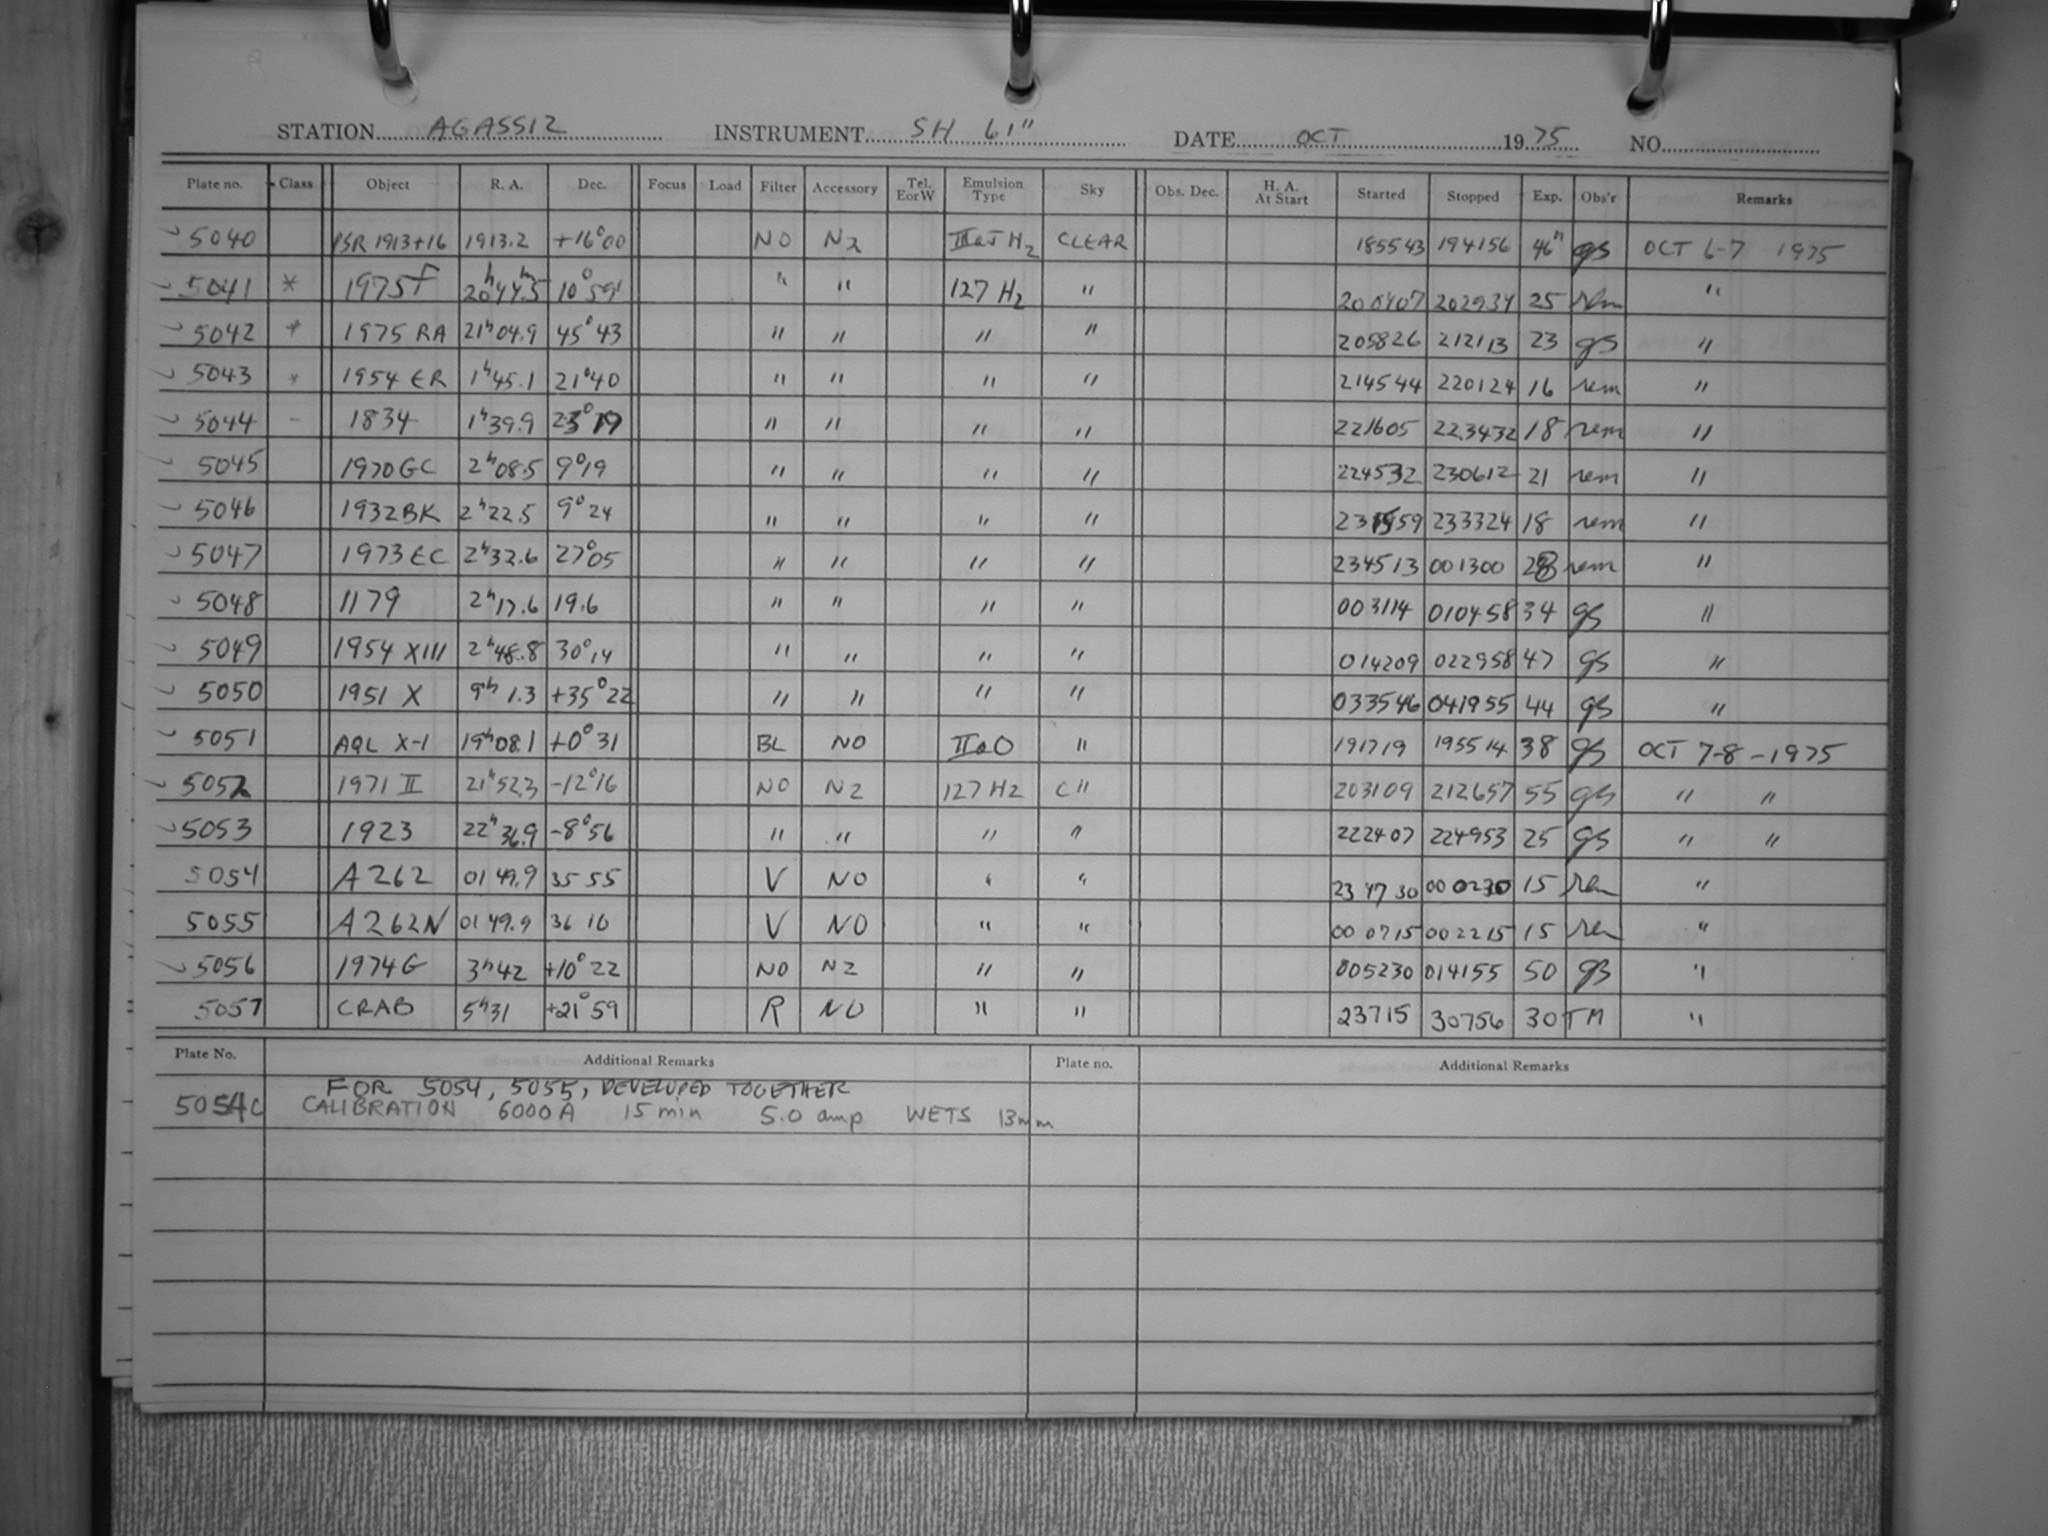 STATION AGASSIZ INSTRUMENT SH 61" DATE OCT 1975 NO.
Plate no. Class Object R. A. Dec. Focus Load Filter Accessory Tel. E or W Emulsion Type Sky Obs. Dec. H. A. At Start Started Stopped Exp. Obs'r Remarks
5040 PSR 1913+16 1913.2 +16°00 NO N2 IIIaJ H2 CLEAR 185543 194156 46m gs OCT 6-7 1975
5041 * 1975f 20h44m.5 10°59' " " 127 H2 " 200407 202934 25 rem "
5042 * 1975 RA 21h04.9 45°43 " " " " 205826 212113 23 gs "
5043 * 1954 ER 1h45.1 21°40 " " " " 214544 220124 16 rem "
5044 - 1834 1h39.9 23°19 " " " " 221605 223432 18 rem "
5045 1970GC 2h08.5 9°19 " " " " 224532 230612 21 rem "
5046 1932BK 2h22.5 9°24 " " " " 231559 233324 18 rem "
5047 1973 EC 2h32.6 27°05 " " " " 234513 001300 28 rem "
5048 1179 2h17.6 19.6 " " " " 003114 010458 34 gs "
5049 1954 XIII 2h48.8 30°14 " " " " 014209 022958 47 gs "
5050 1951 X 9h 1.3 +35°22 " " " " 033546 041955 44 gs "
5051 AQL X-1 19h08.1 +0°31 BL NO IIaO " 191719 195514 38 gs OCT 7-8 -1975
5052 1971 II 21h52.3 -12°16 NO N2 127 H2 C " 203109 212657 55 gs " "
5053 1923 22h36.9 -8°56 " " " " 222407 224953 25 gs " "
5054 A262 01 49.9 35 55 V NO " " 23 47 30 00 0230 15 rem "
5055 A262N 01 49.9 36 10 V NO " " 00 0715 002215 15 rem "
5056 1974G 3h42 +10°22 NO N2 " " 005230 014155 50 gs "
5057 CRAB 5h31 +21°59 R NO " " 23715 30756 30 TM "
Plate No. Additional Remarks Plate no. Additional Remarks
FOR 5054, 5055, DEVELOPED TOGETHER
5054C CALIBRATION 6000A 15 min 5.0 amp WETS 13mm